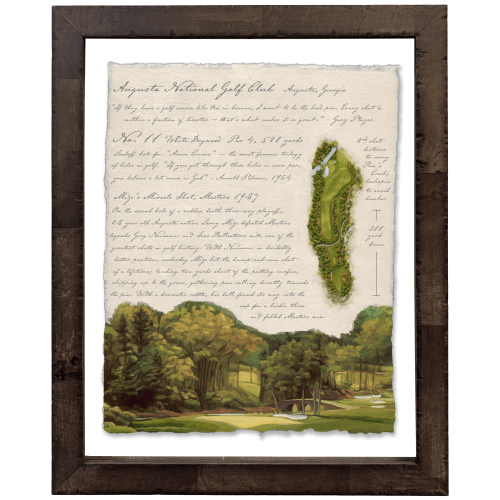 Augusta National Golf Club Augusta, Georgia
"If they have a golf course like this in heaven, I want to be the head pro. Every shot is
within a fraction of disaster – that's what makes it so great." - Gary Player
No. 11 White Dogwood Par 4, 500 yards
hole for "Amen Corner" – the most famous trilogy
of holes in golf. "If you get through these holes in even par,
you believe a bit more in God" - Arnold Palmer, 1964
Mize's Miracle Shot, Masters 1987
On the second hole of a sudden death three-way playoff,
28 year old Augusta native Larry Mize defeated Masters
legends Greg Norman and Seve Ballesteros with one of the
greatest shots in golf history. With Norman in
better position, underdog Mize hit the bump-and-run shot
of a lifetime, landing two yards short of the putting surface,
chipping up to the green, gathering pace rolling directly towards
the pin. With a decorative rattle, his ball found its way into the
cup for a birdie three
and fabled Masters win.
2nd shot
500
yard